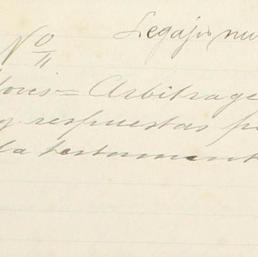 Legajo nu
No 11
= Arbitrage
y respuestas p
la testament